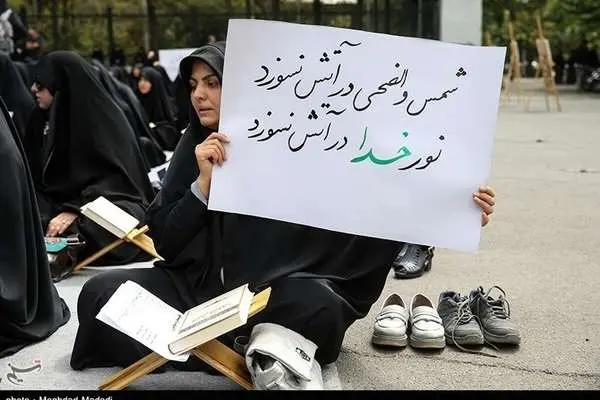 شمس و الضحی در آتش نسوزد
نور خدا در آتش نسوزد
photo ـ Maghdad Madadi